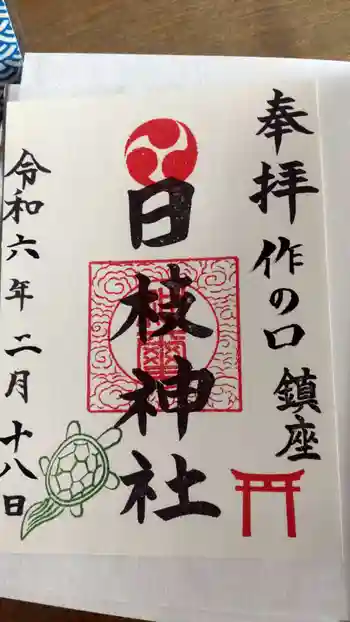 奉拝 作の口 鎮座
日枝神社
令和六年 二月 十八日